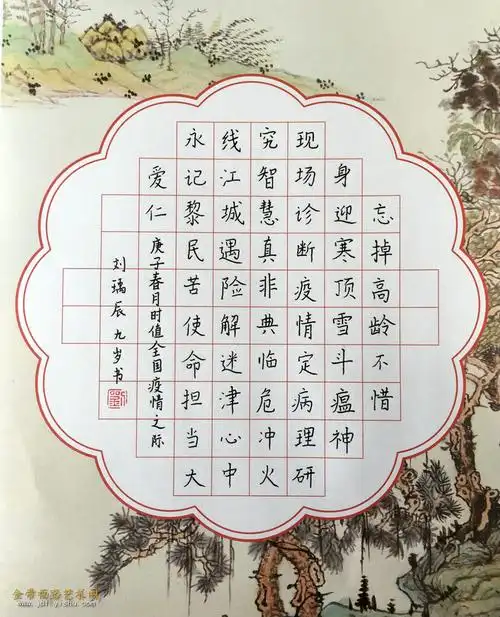 忘掉高龄不惜
身迎寒顶雪斗瘟神
现场诊断疫情定病理研
究智慧真非典临危冲火
线江城遇险解迷津心中
永记黎民苦使命担当大
爱仁
庚子春月时值全国疫情之际
刘璃辰九岁书